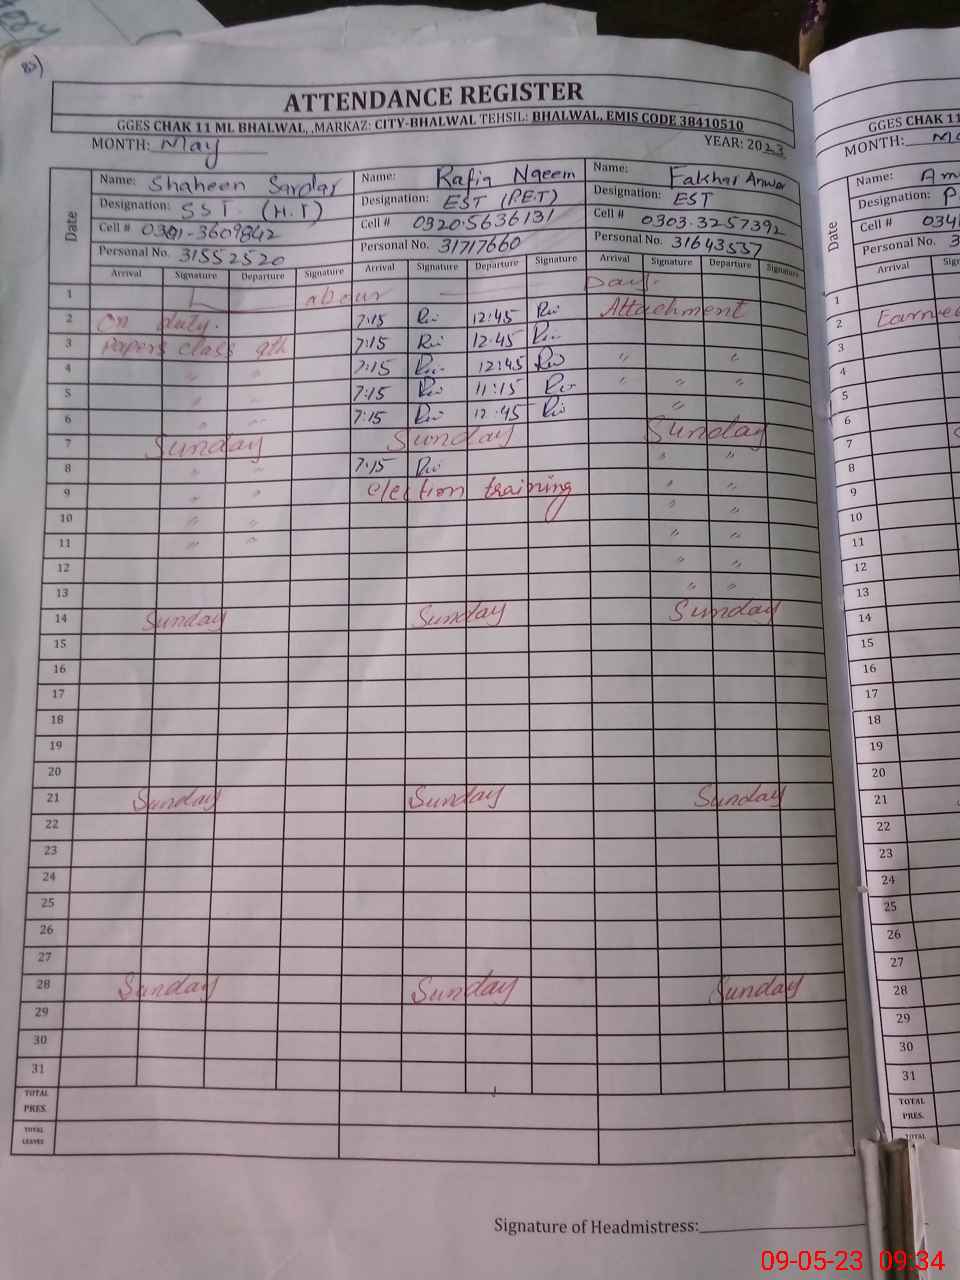 83)
ATTENDANCE REGISTER
GGES CHAK 11 ML BHALWAL, ,MARKAZ: CITY-BHALWAL TEHSIL: BHALWAL, EMIS CODE 38410510
MONTH: May YEAR: 2023
Date
Name: Shaheen Sardar Name: Rafia Naeem Name: Fakhar Anwar
Designation: SST (H.T) Designation: EST (P.E.T) Designation: EST
Cell # 0301-3609842 Cell # 0320.5636131 Cell # 0303.3257392
Personal No. 31552520 Personal No. 31717660 Personal No. 31643537
Arrival Signature Departure Signature Arrival Signature Departure Signature Arrival Signature Departure Signature
1 L abour Day.
2 On duty. 7:15 12:45 Attachment
3 Papers class 9th 7:15 12.45
4 " " 7:15 12:45 " "
5 " " 7:15 11:15 " " "
6 " " 7:15 12:45 "
7 Sunday Sunday Sunday
8 " " 7:15 " "
9 " " election training " "
10 " " " "
11 " " " "
12 " "
13 " "
14 Sunday Sunday Sunday
15
16
17
18
19
20
21 Sunday Sunday Sunday
22
23
24
25
26
27
28 Sunday Sunday Sunday
29
30
31
TOTAL PRES.
TOTAL LEAVES
Signature of Headmistress:
GGES CHAK 11
MONTH:
Date
Name: Am
Designation: P
Cell # 034
Personal No. 3
Arrival
1
2 Earne
3
4
5
6
7
8
9
10
11
12
13
14
15
16
17
18
19
20
21
22
23
24
25
26
27
28
29
30
31
TOTAL PRES.
TOTAL
09-05-23 09:34